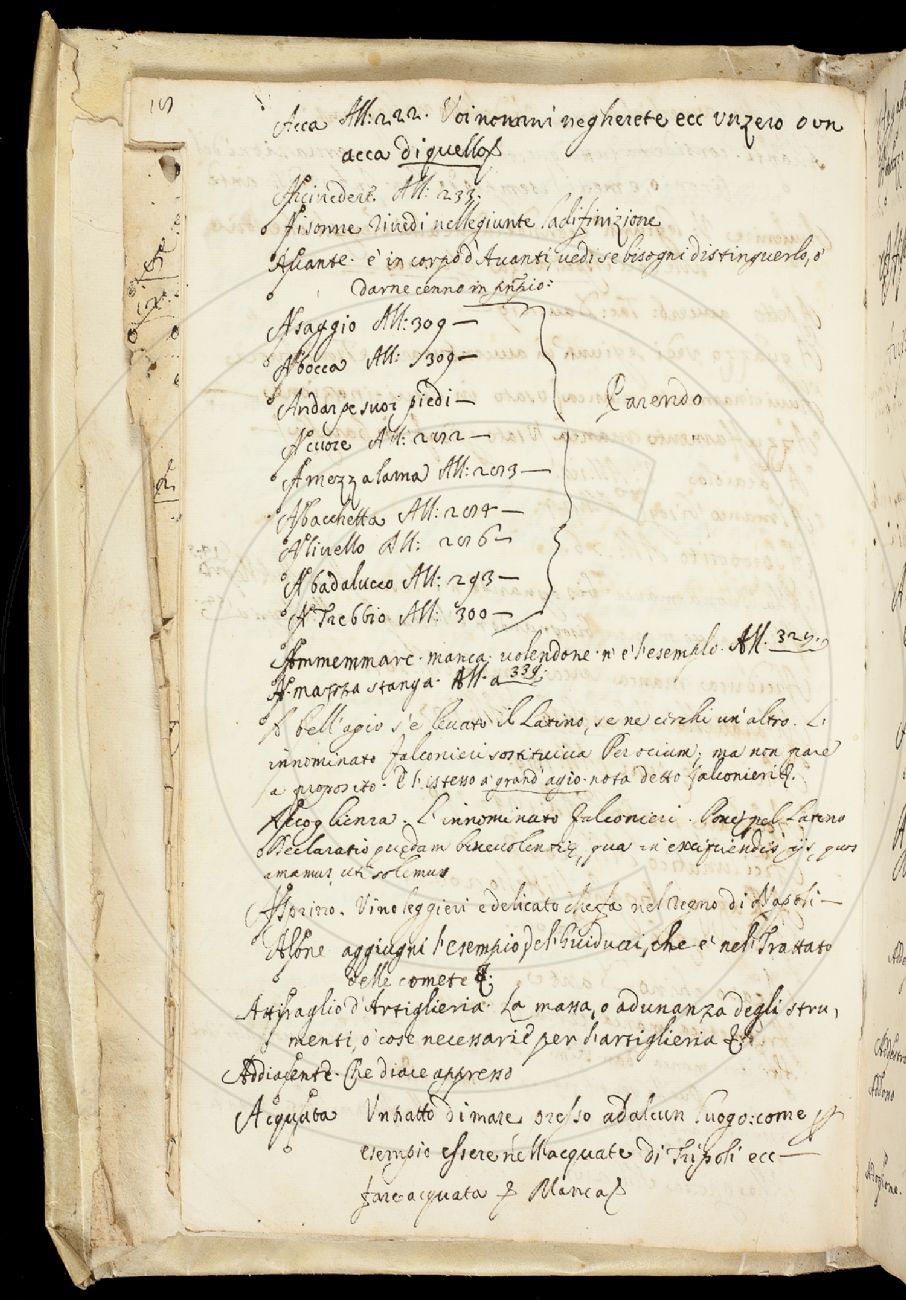 Acca All: 222. Voi non mi negherete ecc un zero o un
acca di quello
All: 233.
Aisonne rivedi nelle giunte la difinizione
Avante. è in corpo d'Avanti, vedi se bisogni distinguerlo, o
darne cenno in
A saggio All: 309 —
A bocca All: 309 —
Andar pe suoi piedi —
Carendo
A cuore All: 2012 —
A mezza lama All: 2013 —
A bacchetta All: 2014 —
A livello All: 2016 —
A badalucco All: 293 —
A Trebbio All: 300 —
Ammemmare. manca. volendone. n'è l'esempio. All. 329.
A mazza stanga. All. a 339.
A bell'agio s'è levato il Latino, se ne cerchi un'altro. L'
innominato Falconieri sostituiva Per ocium; ma non pare
a proposito. E l'istesso a grand'agio. nota detto Falconieri.
Accoglienza. L'innominato Falconieri. Pone pel Latino
Declaratio quedam benevolentie, qua in excipiendis ijs, quos
amamus uti solemus
Asprino. Vino leggieri e delicato che fa nel regno di Napoli —
Alone aggiugni l'esempio del Guiducci, che è nel Trattato
delle comete
Attiraglio d'Artiglieria. La massa, o adunanza degli stru,
menti, o cose necessarie per l'artiglieria
Addiacente. Che diace appresso
Acquata Un tratto di mare presso ad alcun luogo: come
esempio essere nell'acquate di Tripoli ecc —
fare acquata Manca